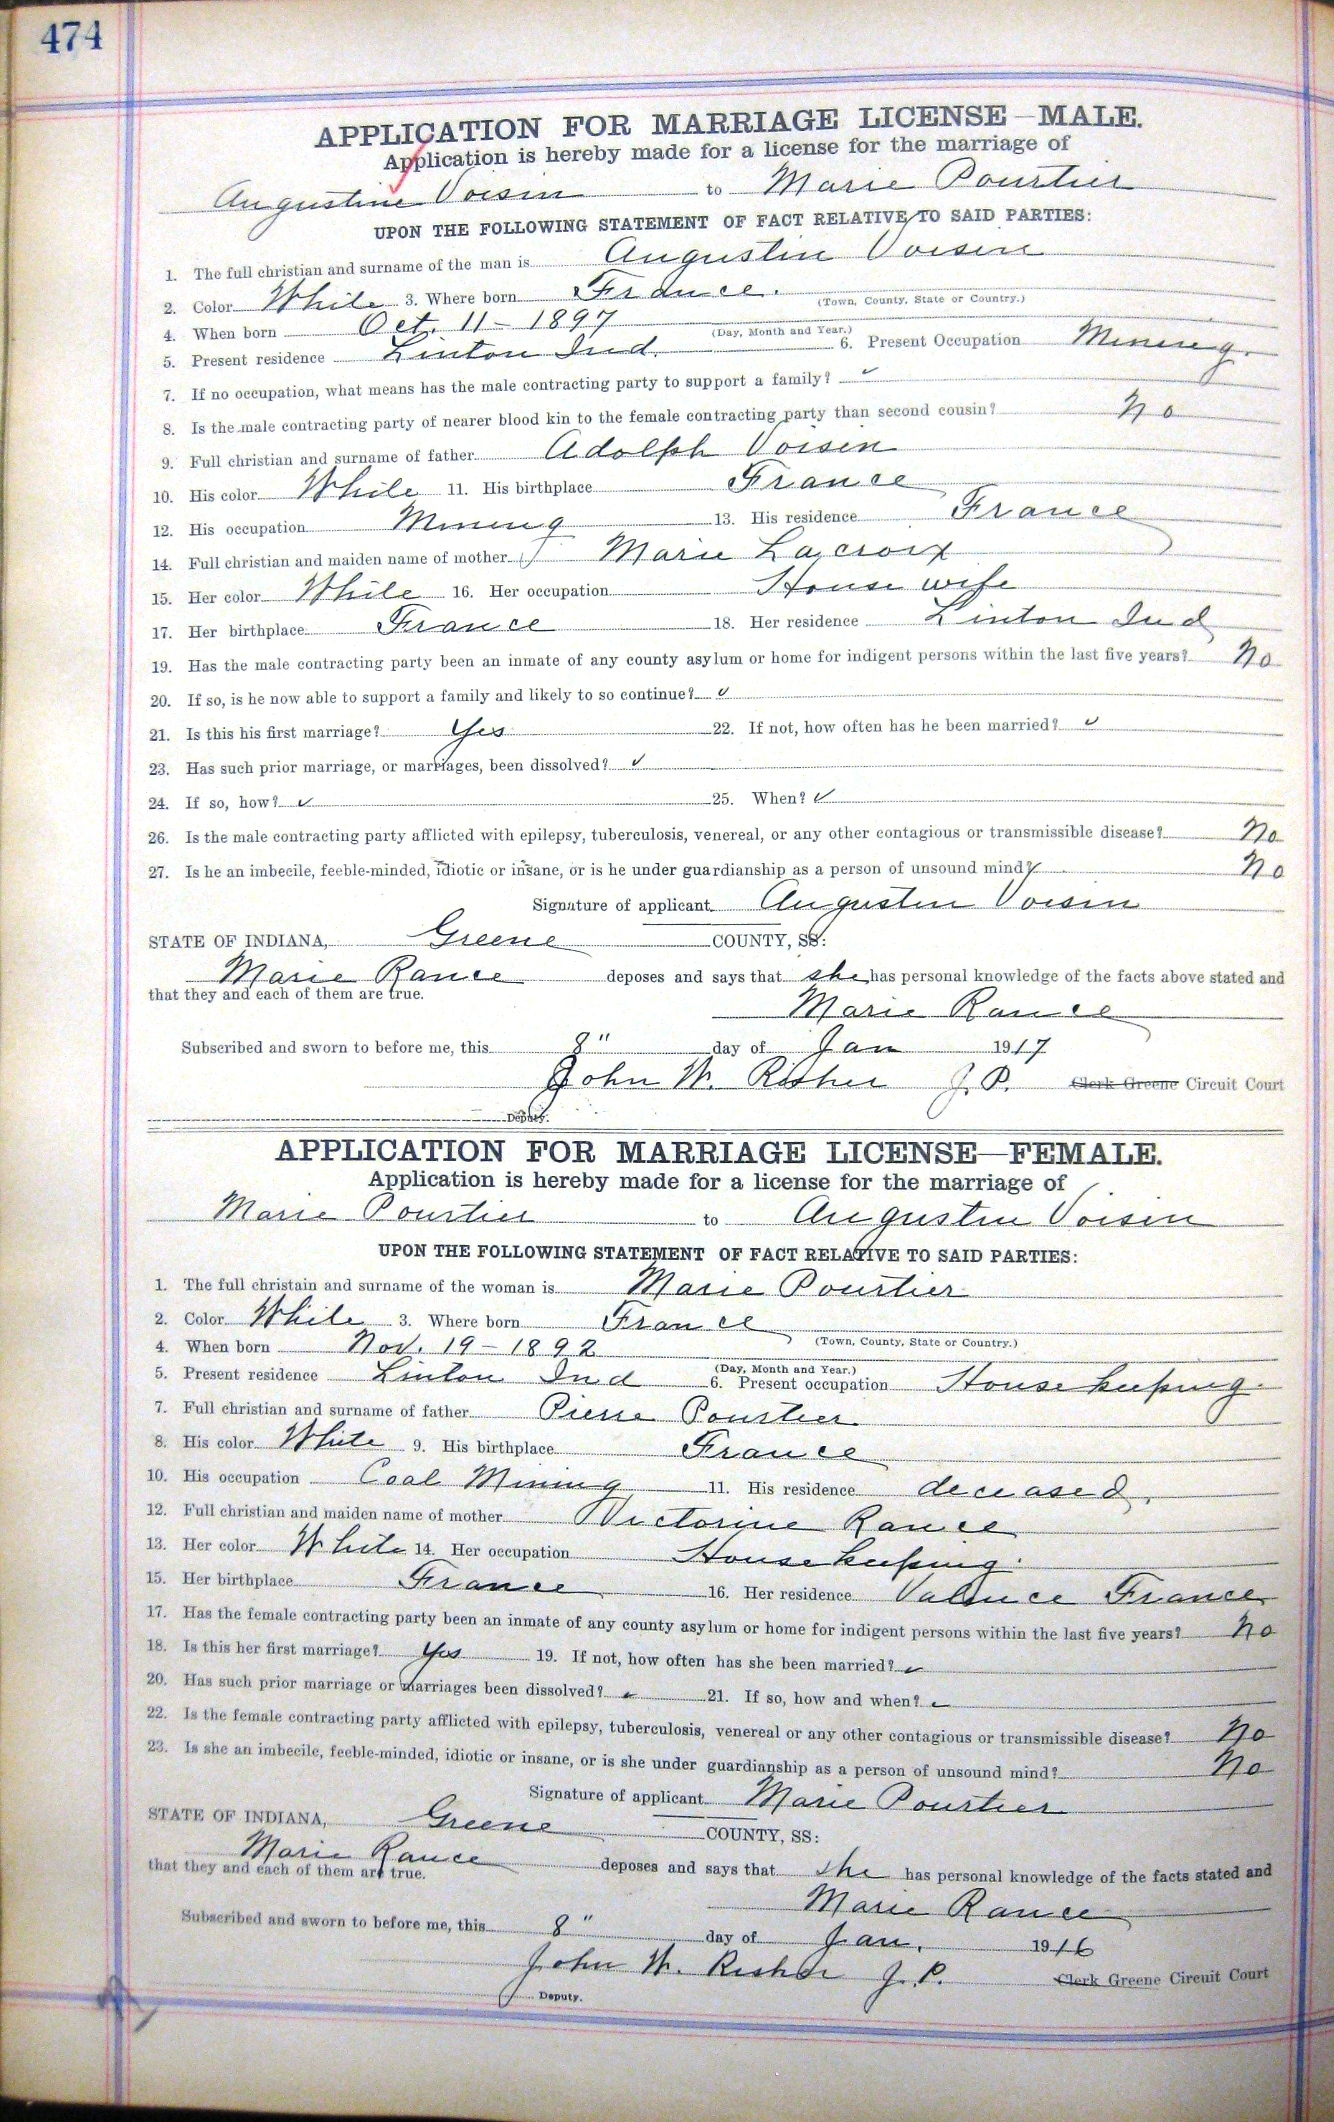 474
APPLICATION FOR MARRIAGE LICENSE—MALE.
Application is hereby made for a license for the marriage of
Augustine Voisin to Marie Pourtier
UPON THE FOLLOWING STATEMENT OF FACT RELATIVE TO SAID PARTIES:
1. The full christian and surname of the man is Augustin Voisin
2. Color White 3. Where born France.
(Town, County, State or Country.)
4. When born Oct. 11 - 1897
(Day, Month and Year.)
5. Present residence Linton Ind. 6. Present Occupation Mining.
7. If no occupation, what means has the male contracting party to support a family? ✓
8. Is the male contracting party of nearer blood kin to the female contracting party than second cousin? No
9. Full christian and surname of father Adolph Voisin
10. His color White 11. His birthplace France
12. His occupation Mining 13. His residence France
14. Full christian and maiden name of mother Marie Lacroix
15. Her color White 16. Her occupation House wife
17. Her birthplace France 18. Her residence Linton Ind
19. Has the male contracting party been an inmate of any county asylum or home for indigent persons within the last five years? No
20. If so, is he now able to support a family and likely to so continue? ✓
21. Is this his first marriage? Yes 22. If not, how often has he been married? ✓
23. Has such prior marriage, or marriages, been dissolved? ✓
24. If so, how? ✓ 25. When? ✓
26. Is the male contracting party afflicted with epilepsy, tuberculosis, venereal, or any other contagious or transmissible disease? No
27. Is he an imbecile, feeble-minded, idiotic or insane, or is he under guardianship as a person of unsound mind? No
Signature of applicant Augustin Voisin
STATE OF INDIANA, Greene COUNTY, SS:
Marie Rance deposes and says that she has personal knowledge of the facts above stated and
that they and each of them are true.
Marie Rance
Subscribed and sworn to before me, this 8" day of Jan 1917
John W. Risher J. P. Clerk Greene Circuit Court
Deputy.
APPLICATION FOR MARRIAGE LICENSE—FEMALE.
Application is hereby made for a license for the marriage of
Marie Pourtier to Augustin Voisin
UPON THE FOLLOWING STATEMENT OF FACT RELATIVE TO SAID PARTIES:
1. The full christain and surname of the woman is Marie Pourtier
2. Color White 3. Where born France
(Town, County, State or Country.)
4. When born Nov. 19 - 1892
(Day, Month and Year.)
5. Present residence Linton Ind 6. Present occupation House keeping.
7. Full christian and surname of father Pierre Pourtier
8. His color White 9. His birthplace France
10. His occupation Coal Mining 11. His residence deceased.
12. Full christian and maiden name of mother Victorine Rance
13. Her color White 14. Her occupation House keeping.
15. Her birthplace France 16. Her residence Valence France
17. Has the female contracting party been an inmate of any county asylum or home for indigent persons within the last five years? No
18. Is this her first marriage? Yes 19. If not, how often has she been married? ✓
20. Has such prior marriage or marriages been dissolved? ✓ 21. If so, how and when? ✓
22. Is the female contracting party afflicted with epilepsy, tuberculosis, venereal or any other contagious or transmissible disease? No
23. Is she an imbecile, feeble-minded, idiotic or insane, or is she under guardianship as a person of unsound mind? No
Signature of applicant Marie Pourtier
STATE OF INDIANA, Greene COUNTY, SS:
Marie Rance deposes and says that she has personal knowledge of the facts stated and
that they and each of them are true.
Marie Rance
Subscribed and sworn to before me, this 8" day of Jan. 1916
John W. Risher J. P. Clerk Greene Circuit Court
Deputy.